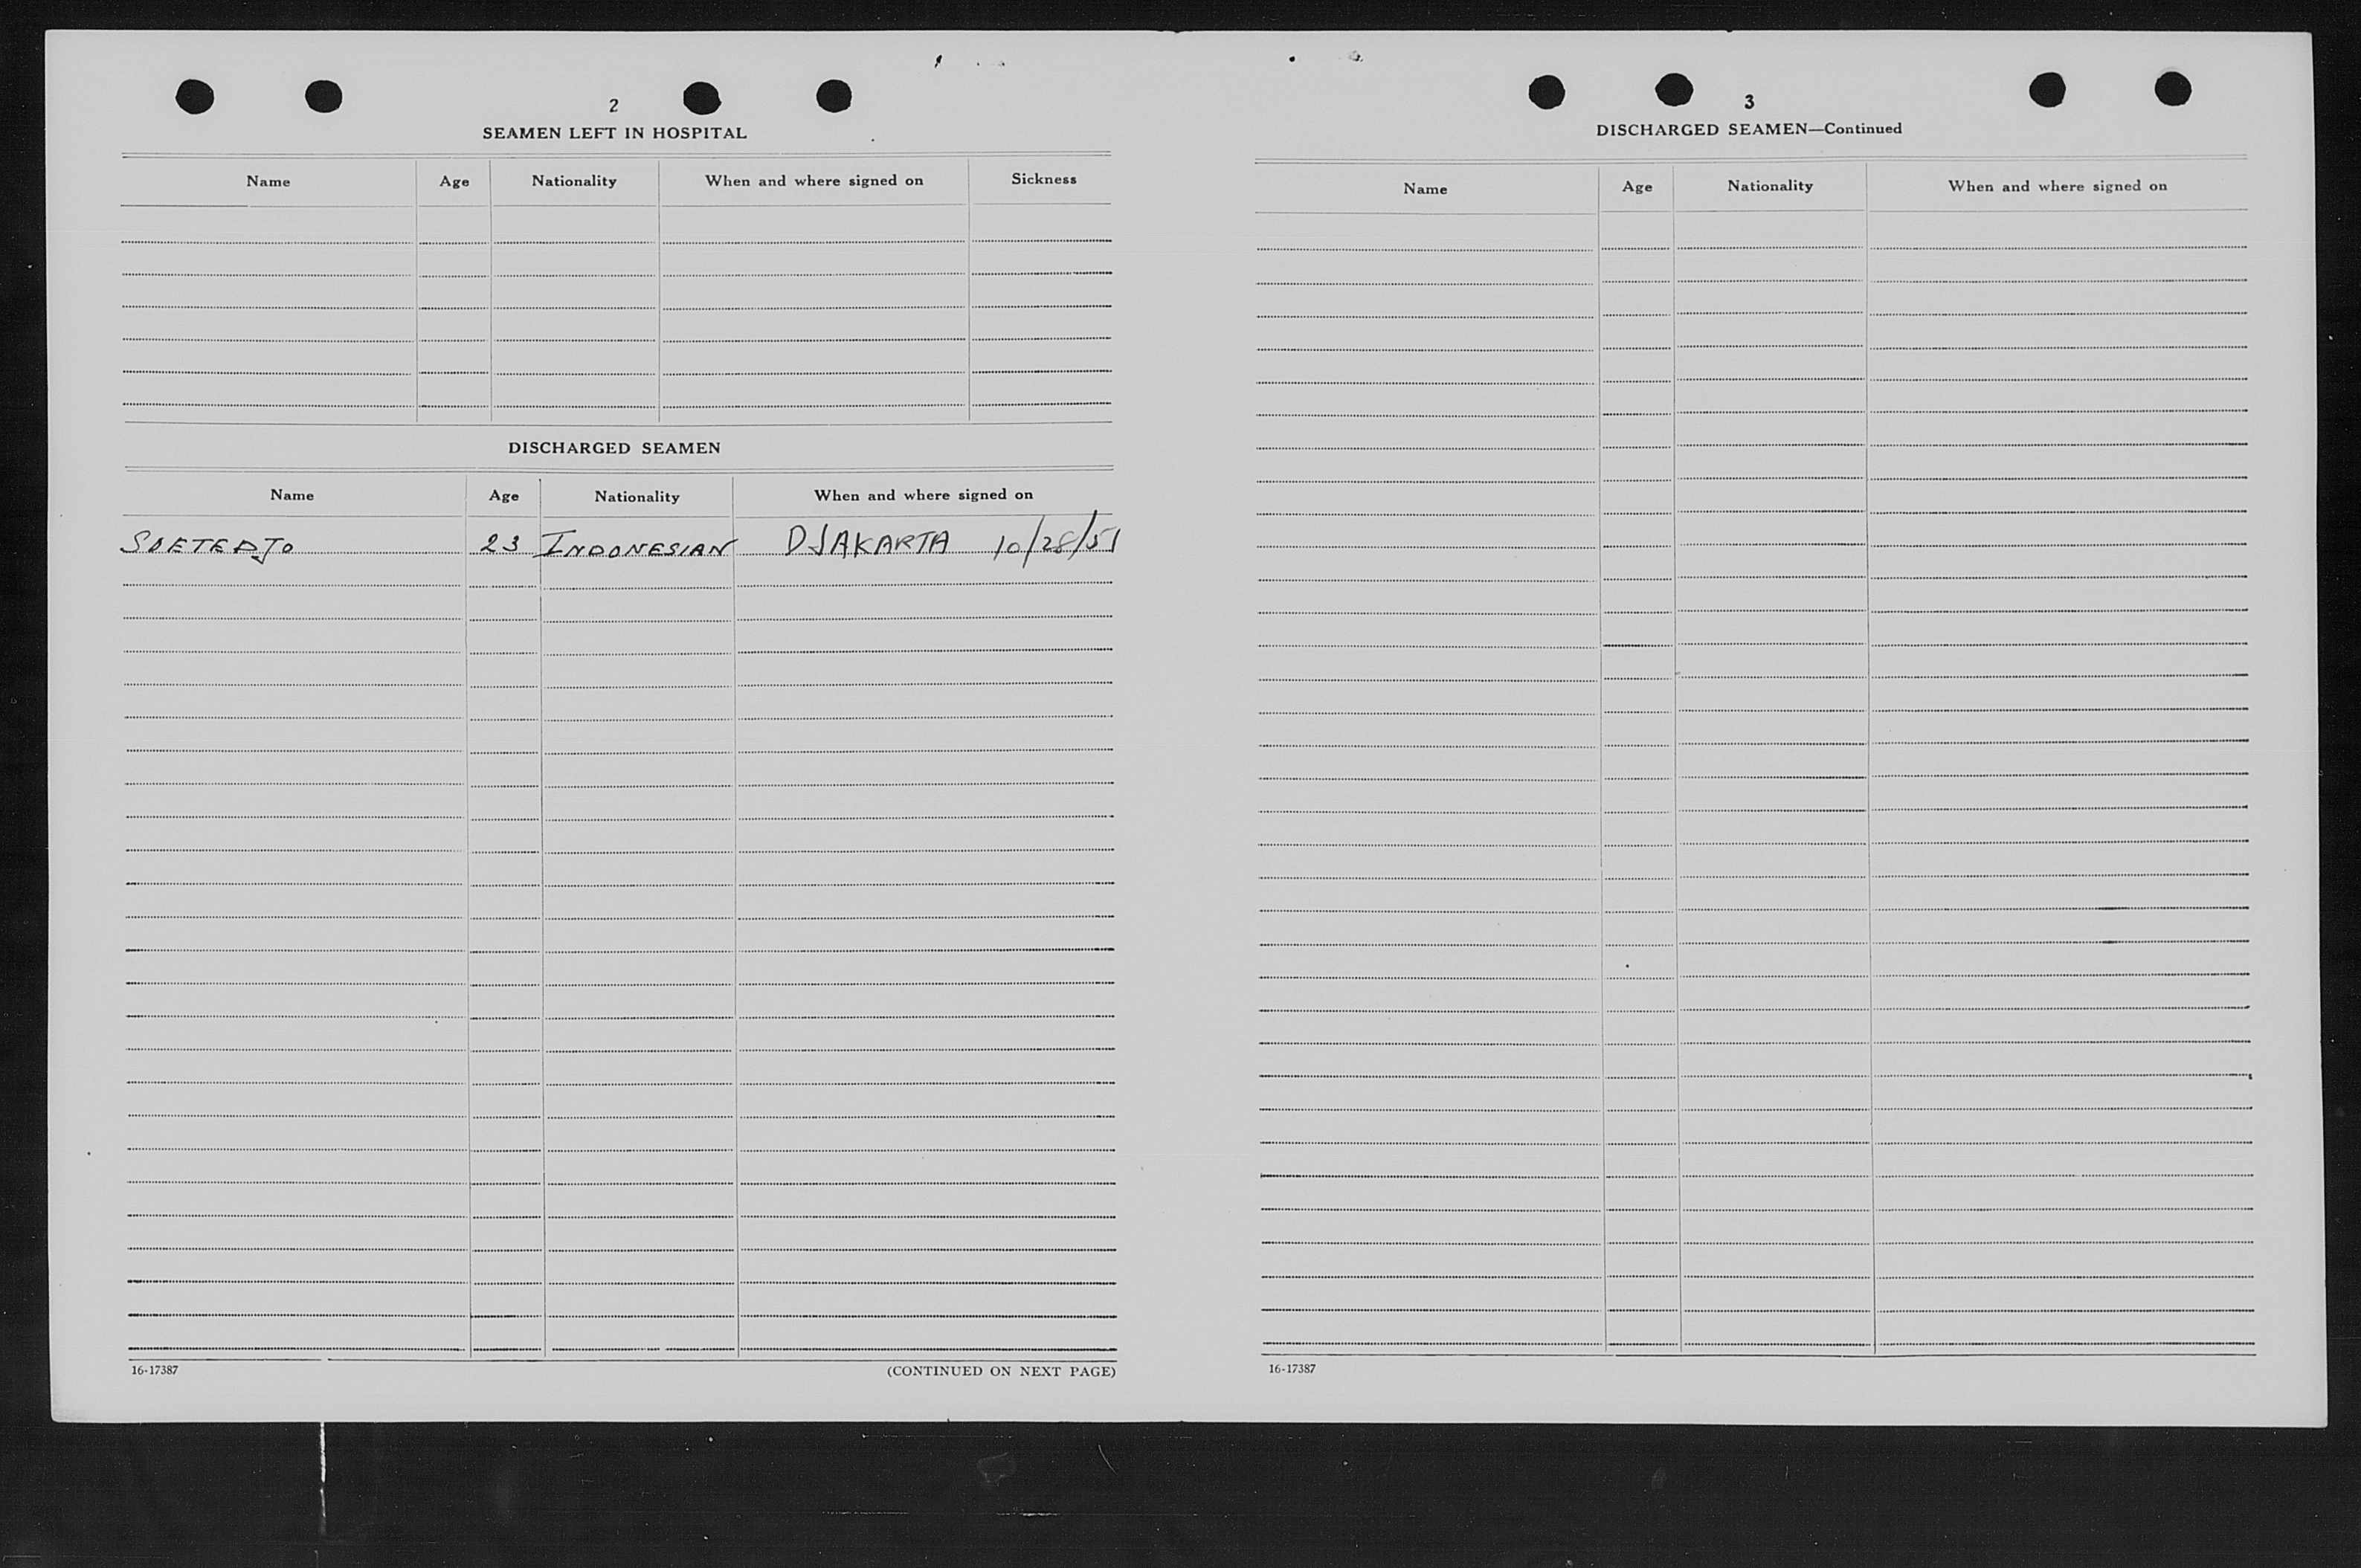 2
SEAMEN LEFT IN HOSPITAL
Name Age Nationality When and where signed on Sickness
DISCHARGED SEAMEN
Name Age Nationality When and where signed on
SOETEDJO 23 INDONESIAN DJAKARTA 10/28/51
16-17387 (CONTINUED ON NEXT PAGE)
3
DISCHARGED SEAMEN—Continued
Name Age Nationality When and where signed on
16-17387